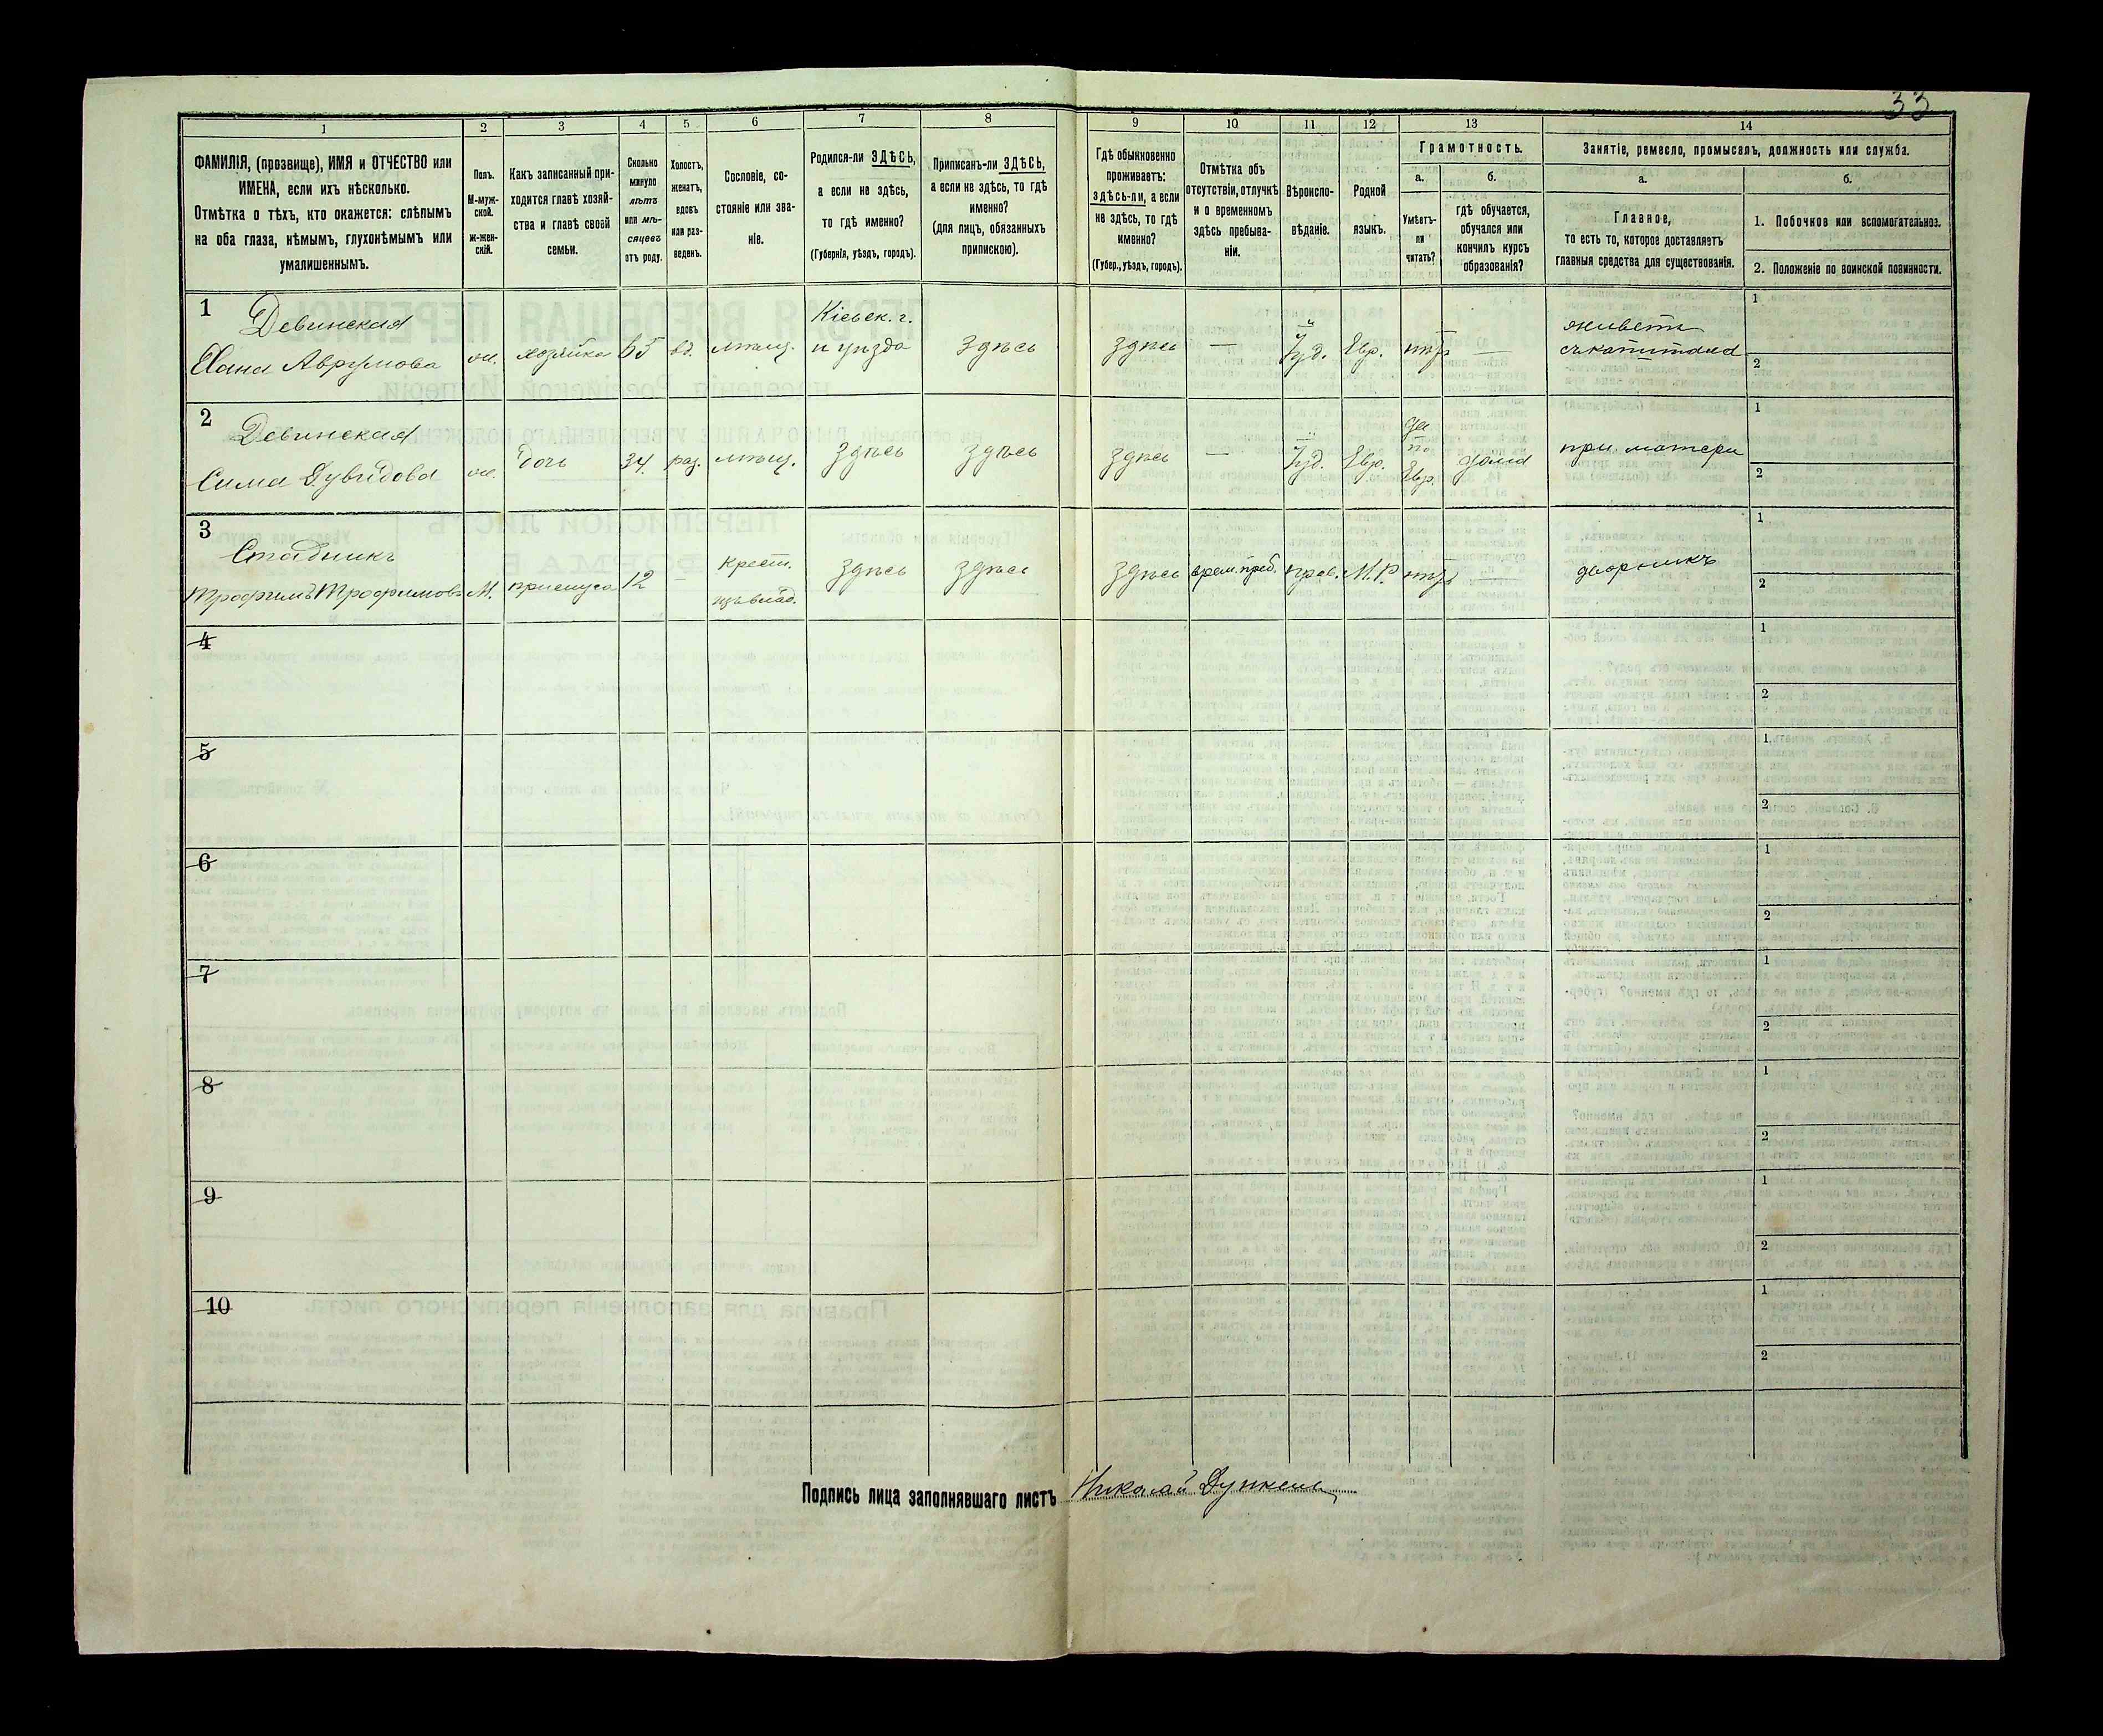 33
1
2
3
4
5
6
7
8
9
10
11
12
13
14
ФАМИЛІЯ, (прозвище), ИМЯ и ОТЧЕСТВО или
ИМЕНА, если ихъ нѣсколько.
Отмѣтка о тѣхъ, кто окажется: слѣпымъ
на оба глаза, нѣмымъ, глухонѣмымъ или
умалишеннымъ.
Полъ.
М-муж-
ской.
ж-жен-
скій.
Какъ записанный при-
ходится главѣ хозяй-
ства и главѣ своей
семьи.
Сколько
минуло
лѣтъ
или мѣ-
сяцевъ
отъ роду.
Холостъ,
женатъ,
вдовъ
или раз-
веденъ.
Сословіе, со-
стояніе или зва-
ніе.
Родился-ли ЗДѢСЬ,
а если не здѣсь,
то гдѣ именно?
(Губернія, уѣздъ, городъ).
Приписанъ-ли ЗДѢСЬ,
а если не здѣсь, то гдѣ
именно?
(для лицъ, обязанныхъ
припискою).
Гдѣ обыкновенно
проживаетъ:
здѣсь-ли, а если
не здѣсь, то гдѣ
именно?
(Губер., уѣздъ, городъ).
Отмѣтка объ
отсутствіи, отлучкѣ
и о временномъ
здѣсь пребыва-
ніи.
Вѣроиспо-
вѣданіе.
Родной
языкъ.
Грамотность.
а.
Умѣетъ-
ли
читать?
б.
гдѣ обучается,
обучался или
кончилъ курсъ
образованія?
Занятіе, ремесло, промыселъ, должность или служба.
а.
Главное,
то есть то, которое доставляетъ
главныя средства для существованія.
б.
1. Побочное или вспомогательное.
2. Положеніе по воинской повинности.
1
Девинская
Хана Аврумова
ж.
хозяйка
65
вд.
мѣщ.
Кіевск. г.
и уѣзда
здѣсь
здѣсь
—
Іуд.
Евр.
нѣтъ
—
живетъ
съ капитала
1
2
2
Девинская
Сима Дувидова
ж.
дочь
34
раз.
мѣщ.
здѣсь
здѣсь
здѣсь
—
Іуд.
Евр.
да
по
Евр.
дома
при матери
1
2
3
Стадникъ
Трофимъ Трофимовъ
М.
прислуга
12
—
крест.
изъ влад.
здѣсь
здѣсь
здѣсь
врем. преб.
прав.
М.Р.
нѣтъ
—
дворникъ
1
2
4
1
2
5
1
2
6
1
2
7
1
2
8
1
2
9
1
2
10
1
2
Подпись лица заполнявшаго листъ Николай